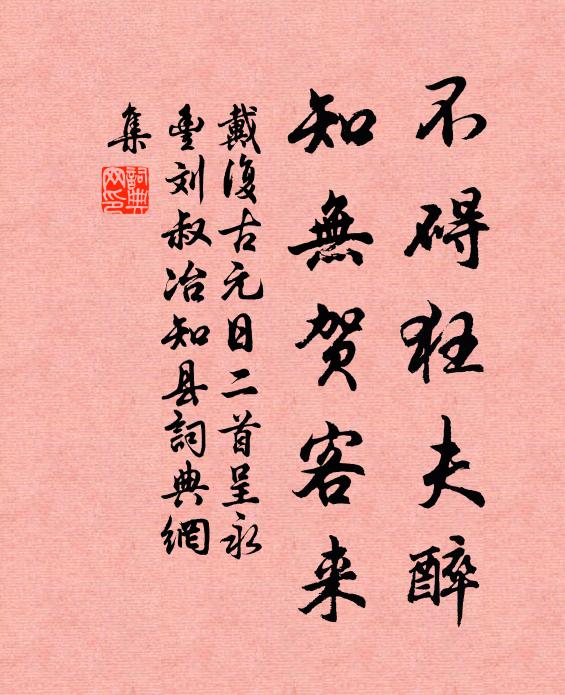 不碍狂夫醉
知無贺客来
戴復古元日二首呈永
豊刘叔冶知县詞典網
集
詞典网印